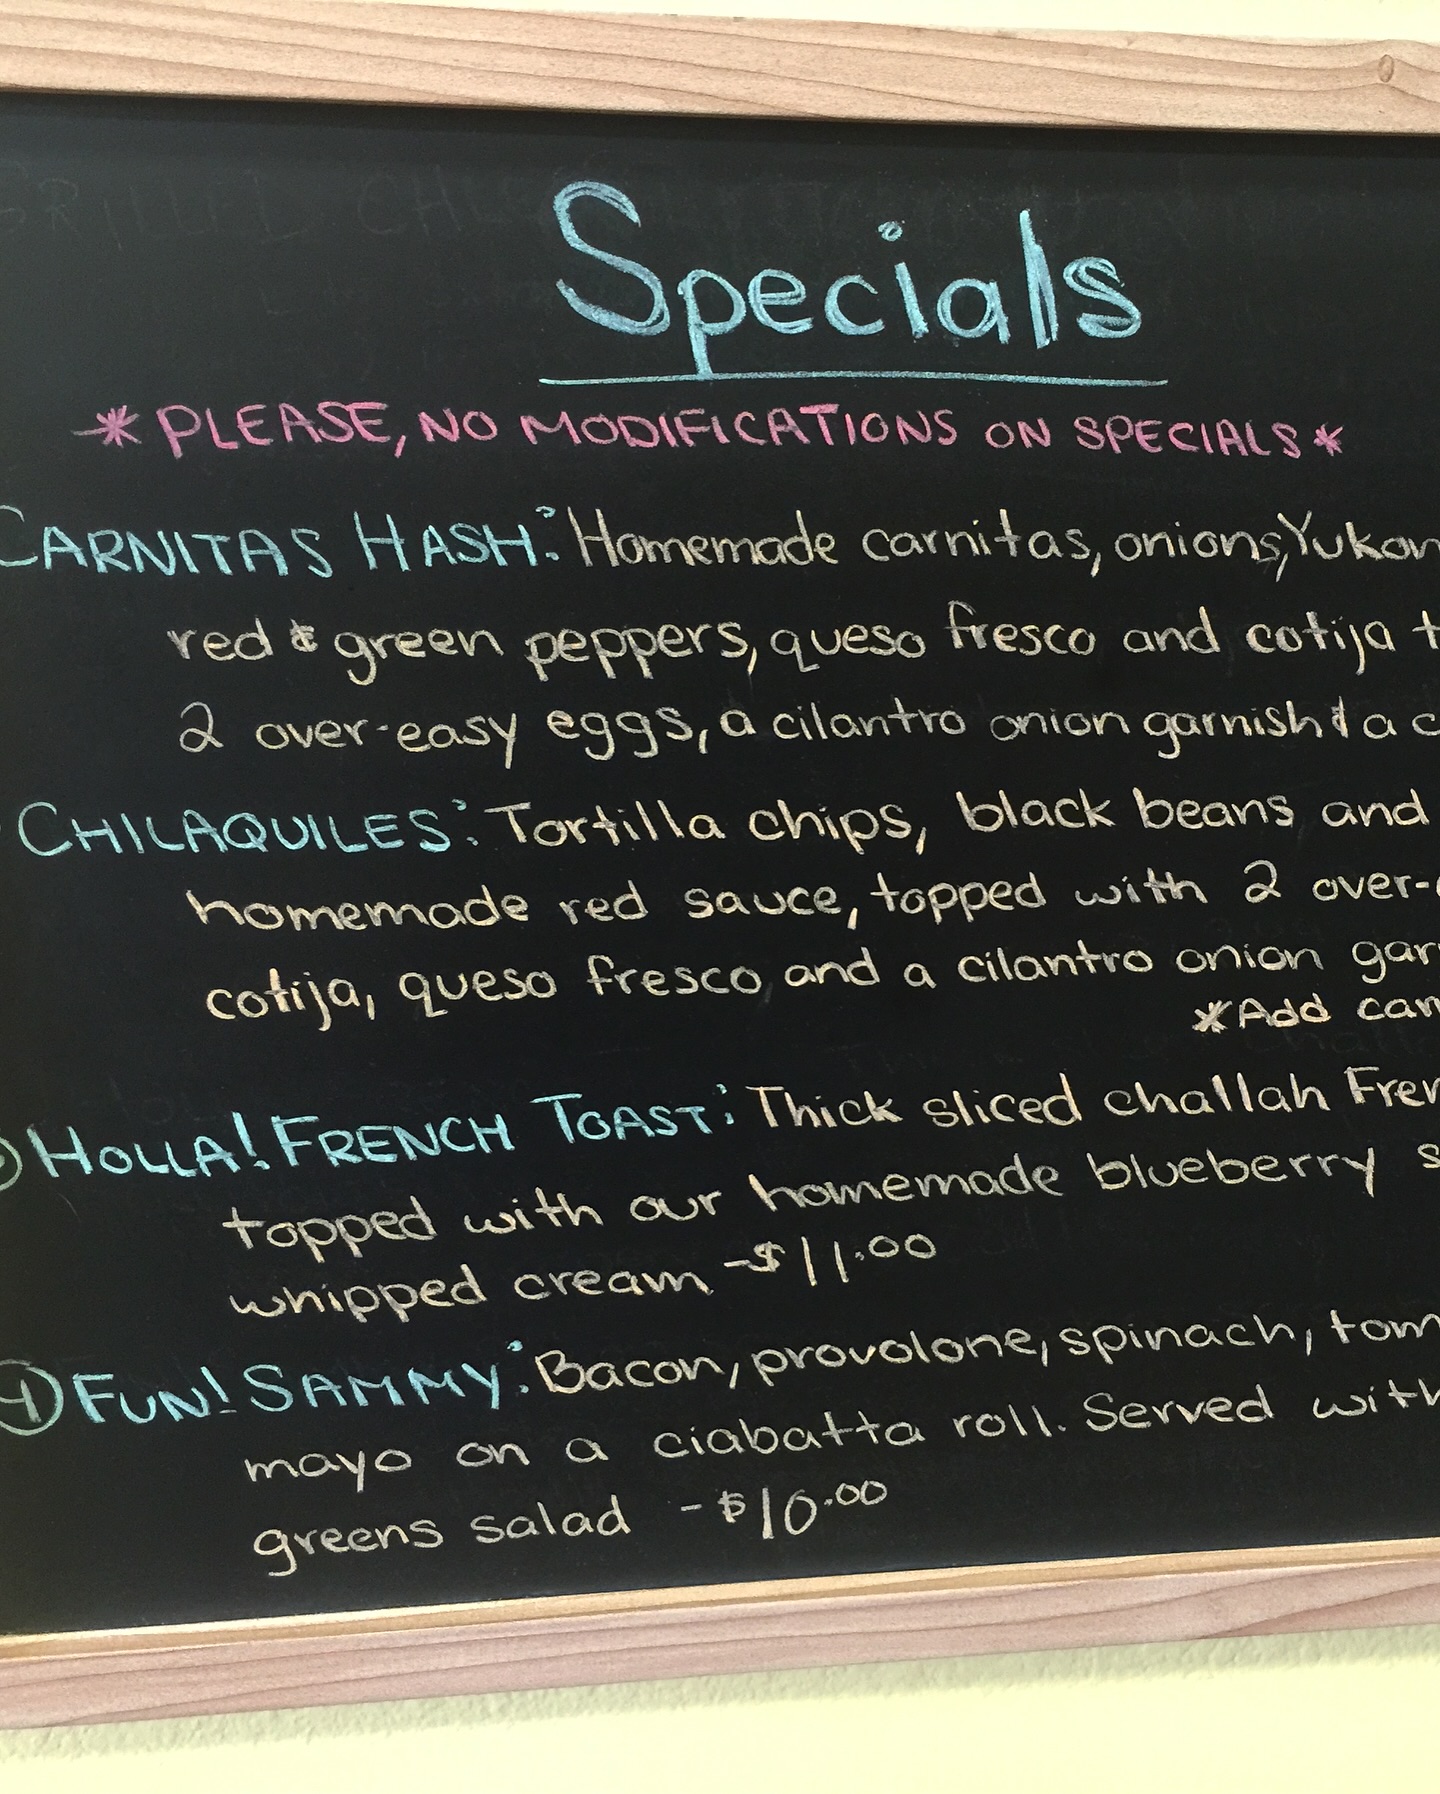 Specials
*PLEASE, NO MODIFICATIONS ON SPECIALS*
CARNITAS HASH: Homemade carnitas, onions, Yukon
red & green peppers, queso fresco and cotija
2 over-easy eggs, a cilantro onion garnish & a
CHILAQUILES: Tortilla chips, black beans and
homemade red sauce, topped with 2 over-
cotija, queso fresco and a cilantro onion
*Add
HOLLA! FRENCH TOAST: Thick sliced challah
topped with our homemade blueberry
whipped cream -$11.00
4 FUN! SAMMY: Bacon, provolone, spinach,
mayo on a ciabatta roll. Served with
greens salad -$10.00